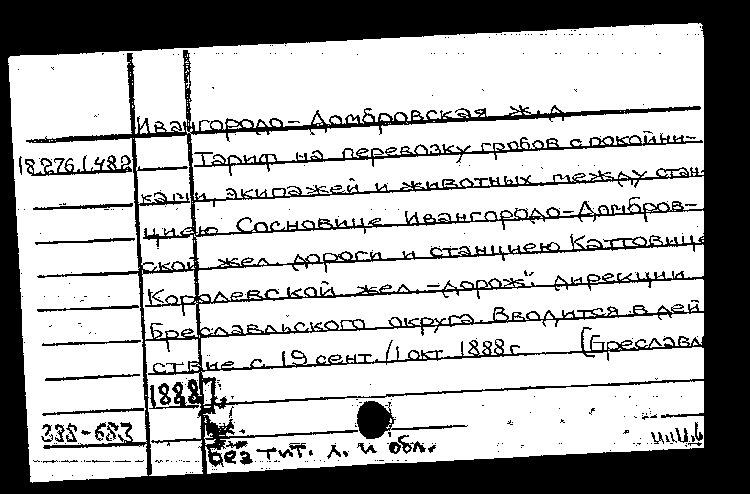 Ивангородо-Домбровская ж.д
18.276.1.482 Тариф на перевозку гробов с покойни-
ками, экипажей и животных между стан-
циею Сосновице Ивангородо-Домбров-
ской жел. дороги и станциею Каттовице
Королевской жел.-дорож". дирекции
Бреславльского округа. Вводится в дей
ствие с 19 сент./1 окт. 1888 г. [Бреславл
1888].
338-683
Без тит. л. и обл.